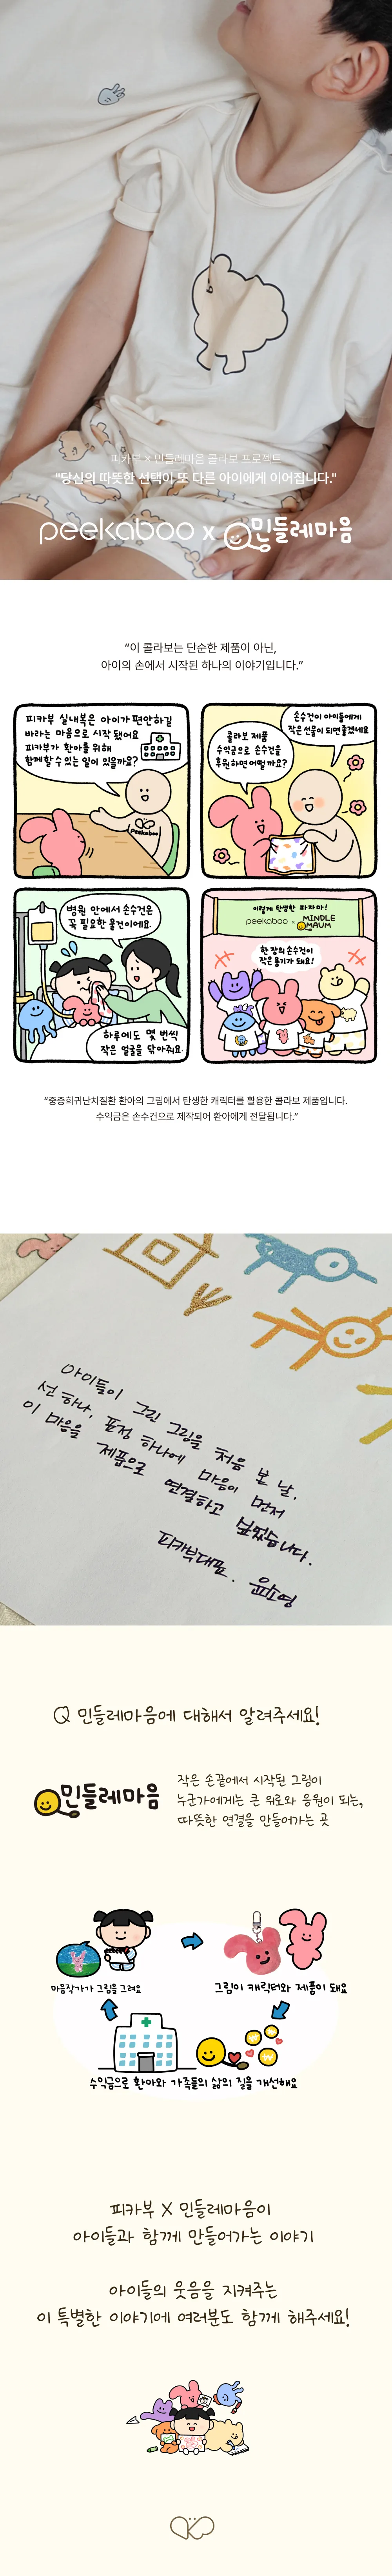 피카부 × 민들레마음 콜라보 프로젝트
"당신의 따뜻한 선택이 또 다른 아이에게 이어집니다."
peekaboo x 민들레마음
“이 콜라보는 단순한 제품이 아닌,
아이의 손에서 시작된 하나의 이야기입니다.”
피카부 실내복은 아이가 편안하길
바라는 마음으로 시작 됐어요
피카부가 환아를 위해
함께할 수 있는 일이 있을까요?
Peekaboo
손수건이 아이들에게
작은선물이 되면좋겠네요
콜라보 제품
수익금으로 손수건을
후원하면 어떨까요?
병원 안에서 손수건은
꼭 필요한 물건이에요.
하루에도 몇 번씩
작은 얼굴을 닦아줘요
이렇게 탄생한 파자마!
peekaboo × MINDLE MAUM
한 장의 손수건이
작은용기가 돼요!
“중증희귀난치질환 환아의 그림에서 탄생한 캐릭터를 활용한 콜라보 제품입니다.
수익금은 손수건으로 제작되어 환아에게 전달됩니다.”
아이들이 그린 그림을 처음 본 날,
선 하나, 표정 하나에 마음이 먼저
이 마음을 제품으로 연결하고 싶었습니다.
피카부대표. 윤소영
Q 민들레마음에 대해서 알려주세요!
민들레마음
작은 손끝에서 시작된 그림이
누군가에게는 큰 위로와 응원이 되는,
따뜻한 연결을 만들어가는 곳
마음작가가 그림을 그려요
그림이 캐릭터와 제품이 돼요
수익금으로 환아와 가족들의 삶의 질을 개선해요
피카부 X 민들레마음이
아이들과 함께 만들어가는 이야기
아이들의 웃음을 지켜주는
이 특별한 이야기에 여러분도 함께 해주세요!